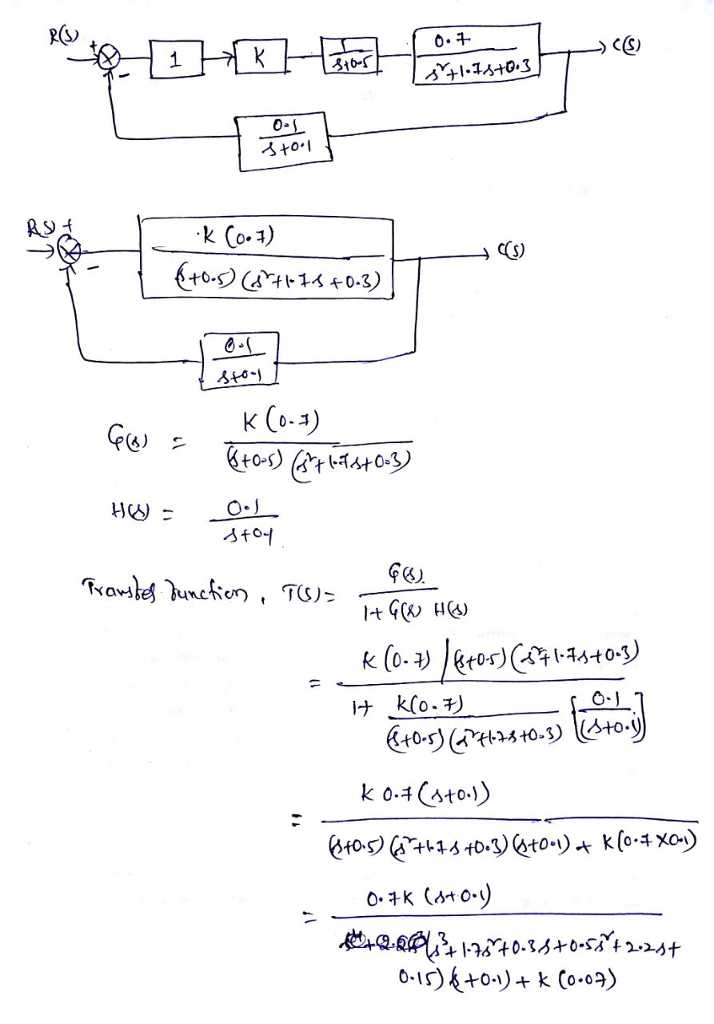 R(s) + - 1 K 1/(s+0.5) 0.7/(s²+1.7s+0.3) C(s)
0.1/(s+0.1)
R(s) + - K(0.7)/((s+0.5)(s²+1.7s+0.3)) C(s)
0.1/(s+0.1)
G(s) = K(0.7)/((s+0.5)(s²+1.7s+0.3))
H(s) = 0.1/(s+0.1)
Transfer function, T(s) = G(s)/(1+G(s) H(s))
= (K(0.7)/(s+0.5)(s²+1.7s+0.3))/(1+ K(0.7)/((s+0.5)(s²+1.7s+0.3)) [0.1/(s+0.1)])
= K 0.7(s+0.1)/((s+0.5)(s²+1.7s+0.3)(s+0.1) + K(0.7×0.1))
= 0.7K (s+0.1)/
(s³+1.7s²+0.3s+0.5s²+2.2s+
0.15)(s+0.1)+K(0.07)